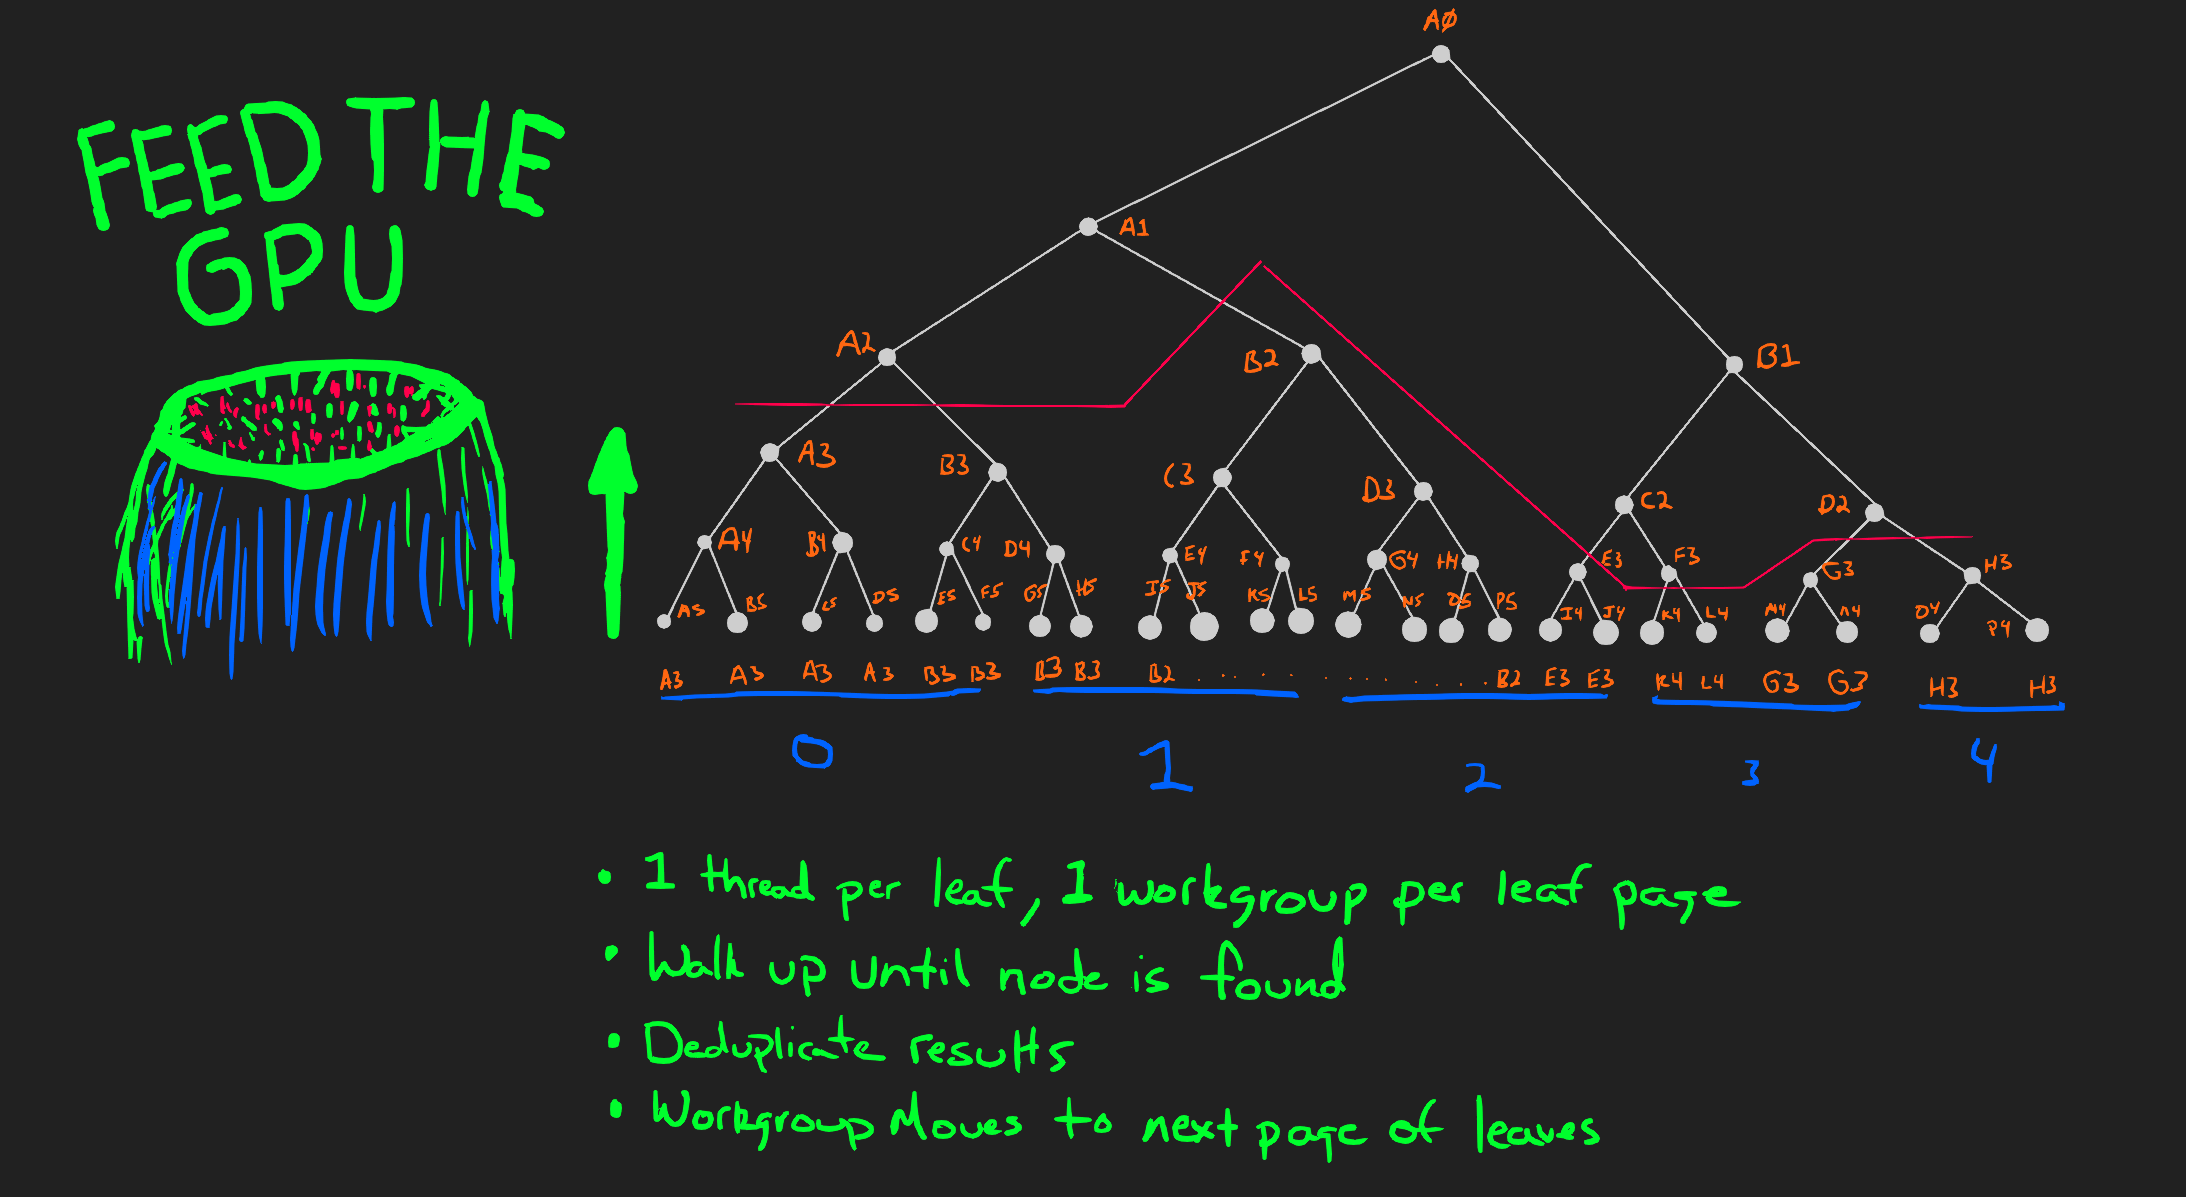 FEED THE
GPU
AØ
A1
A2
B2
B1
A3
B3
C3
D3
C2
D2
A4
B4
C4
D4
E4
F4
G4
H4
E3
F3
G3
H3
A5
B5
C5
D5
E5
F5
G5
H5
I5
J5
K5
L5
M5
N5
O5
P5
I4
J4
K4
L4
M4
N4
O4
P4
A3 A3 A3 A3 B3 B3 B3 B3 B2 . . . . . . . . . . . . . B2 E3 E3 K4 L4 G3 G3 H3 H3
0 1 2 3 4
• 1 thread per leaf, 1 workgroup per leaf page
• Walk up until node is found
• Deduplicate results
• Workgroup Moves to next page of leaves